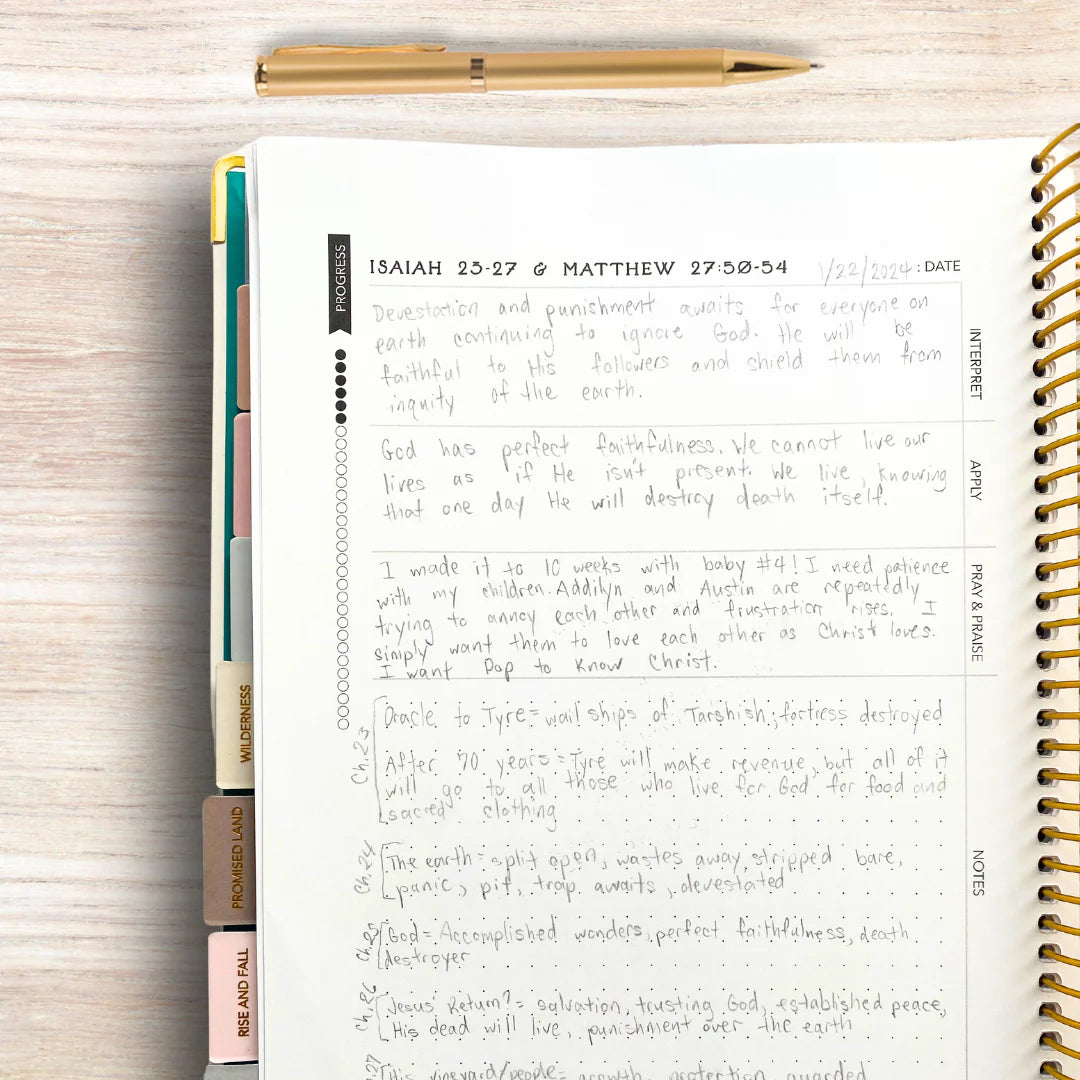 PROGRESS
ISAIAH 23-27 & MATTHEW 27:50-54 1/22/2024 : DATE
INTERPRET
Devestation and punishment awaits for everyone on
earth continuing to ignore God. He will be
faithful to His followers and shield them from
inquity of the earth.
APPLY
God has perfect faithfulness. We cannot live our
lives as if He isn't present. We live, knowing
that one day He will destroy death itself.
PRAY & PRAISE
I made it to 10 weeks with baby #4! I need patience
with my children. Addilyn and Austin are repeatedly
trying to annoy each other and frustration rises. I
simply want them to love each other as Christ loves.
I want Pop to know Christ.
NOTES
Ch.23
Oracle to Tyre = wail ships of Tarshish; fortress destroyed
After 70 years = Tyre will make revenue, but all of it
will go to all those who live for God for food and
sacred clothing
Ch.24
The earth = split open, wastes away, stripped bare,
panic, pit, trap awaits, devestated
Ch.25
God = Accomplished wonders, perfect faithfulness, death
destroyer
Ch.26
Jesus' Return? = salvation, trusting God, established peace,
His dead will live, punishment over the earth
.27
His vineyard/people = growth, protection, guarded
WILDERNESS
PROMISED LAND
RISE AND FALL